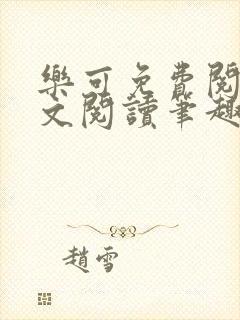 樂可免費閱
文閱讀筆趣
趙雪